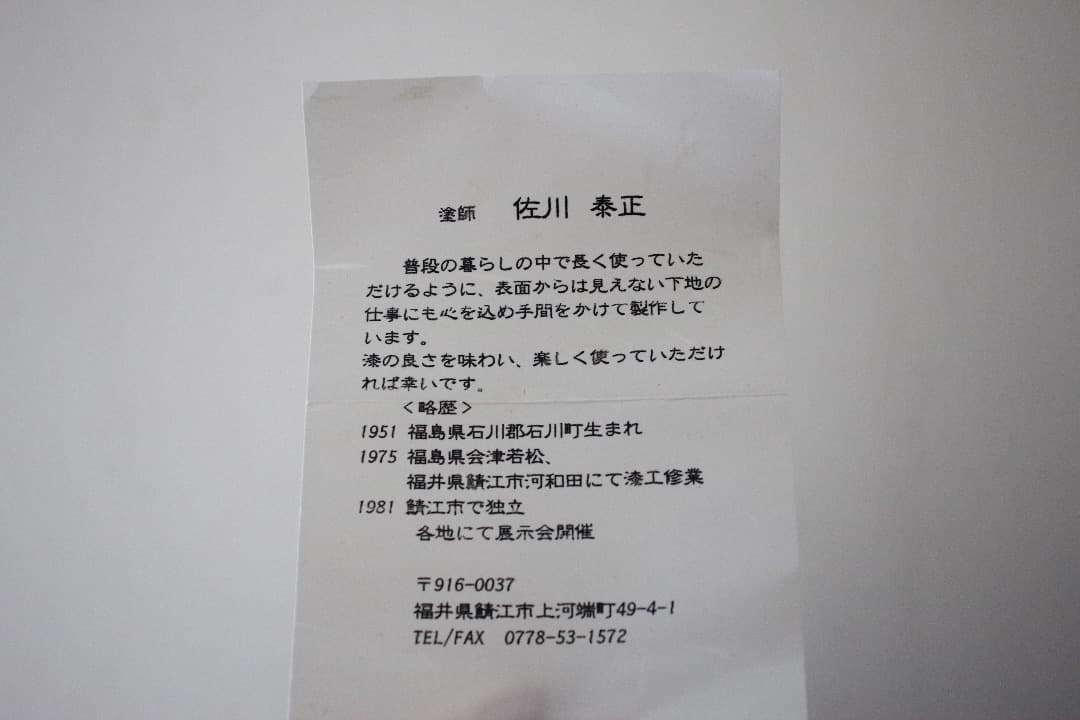 塗師 佐川 泰正
普段の暮らしの中で長く使っていた
だけるように、表面からは見えない下地の
仕事にも心を込め手間をかけて製作して
います。
漆の良さを味わい、楽しく使っていただけ
れば幸いです。
＜略歴＞
1951 福島県石川郡石川町生まれ
1975 福島県会津若松、
福井県鯖江市河和田にて漆工修業
1981 鯖江市で独立
各地にて展示会開催
〒916-0037
福井県鯖江市上河端町49-4-1
TEL/FAX 0778-53-1572